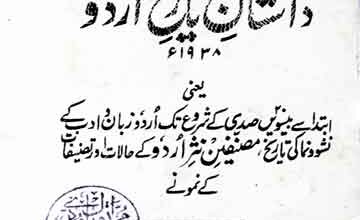 داستانِ تاریخِ اردو
۱۹۳۸ء
یعنی
ابتدا سے بیسویں صدی کے شروع تک اُردو زبان و ادب کے
نشوونما کی تاریخ، مصنفینِ نثرِ اردو کے حالات اور تصنیفات
کے نمونے